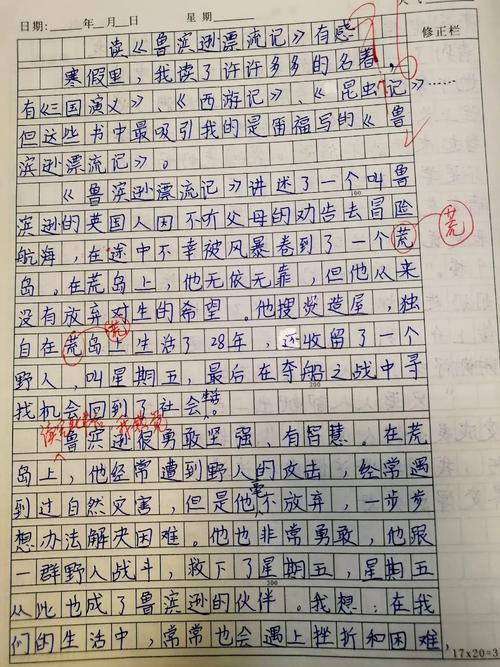 日期：　　年　月　日　　星期
修正栏
读《鲁滨逊漂流记》有感
寒假里，我读了许许多多的名著，
有《三国演义》、《西游记》、《昆虫记》……
但这些书中最吸引我的是笛福写的《鲁
滨逊漂流记》。
《鲁滨逊漂流记》讲述了一个叫鲁
100
滨逊的英国人因不听父母的劝告去冒险
航海，在途中不幸被风暴卷到了一个荒
荒
岛。在荒岛上，他无依无靠，但他从来
没有放弃对生的希望。他搜货造屋，独
荒
自在荒岛上生活了28年，还收留了一个
野人，叫星期五，最后在夺船之战中寻
200
找机会回到了社会。
鲁滨逊很勇敢坚强、有智慧。在荒
岛上，他经常遭到野人的攻击，经常遇
到过自然灾害，但是他毫不放弃，一步步
想办法解决困难。他也非常勇敢，他跟
一群野人战斗，救下了星期五，星期五
300
从此也成了鲁滨逊的伙伴。我想：在我
们的生活中，常常也会遇上挫折和困难，
17×20=3